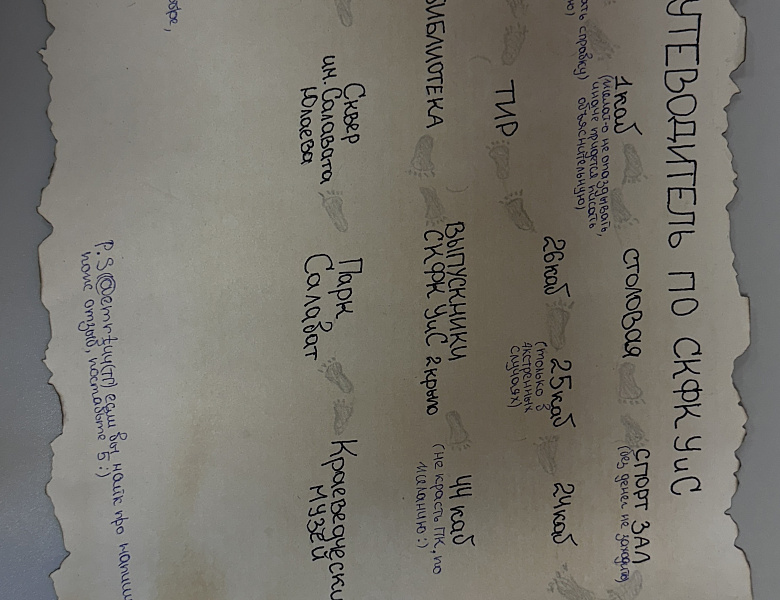 УТЕВОДИТЕЛЬ ПО СКФК УиС
ать справку)
1каб
(желат-о не опаздывать,
иначе придется писать
объяснительную)
СТОЛОВАЯ
СПОРТ ЗАЛ
(без денег не заходить)
ТИР
26каб
25каб
(только в
экстренных
случаях)
24каб
БИБЛИОТЕКА
ВЫПУСКНИКИ
СКФК УиС 2 крыло
44 каб
(не красть ПК, по
желанию :)
Сквер
им. Салавата
Юлаева
Парк
Салават
Краеведчески
музей
P.S если вы найт про напиш
нам отзыв, поставьте 5 :)